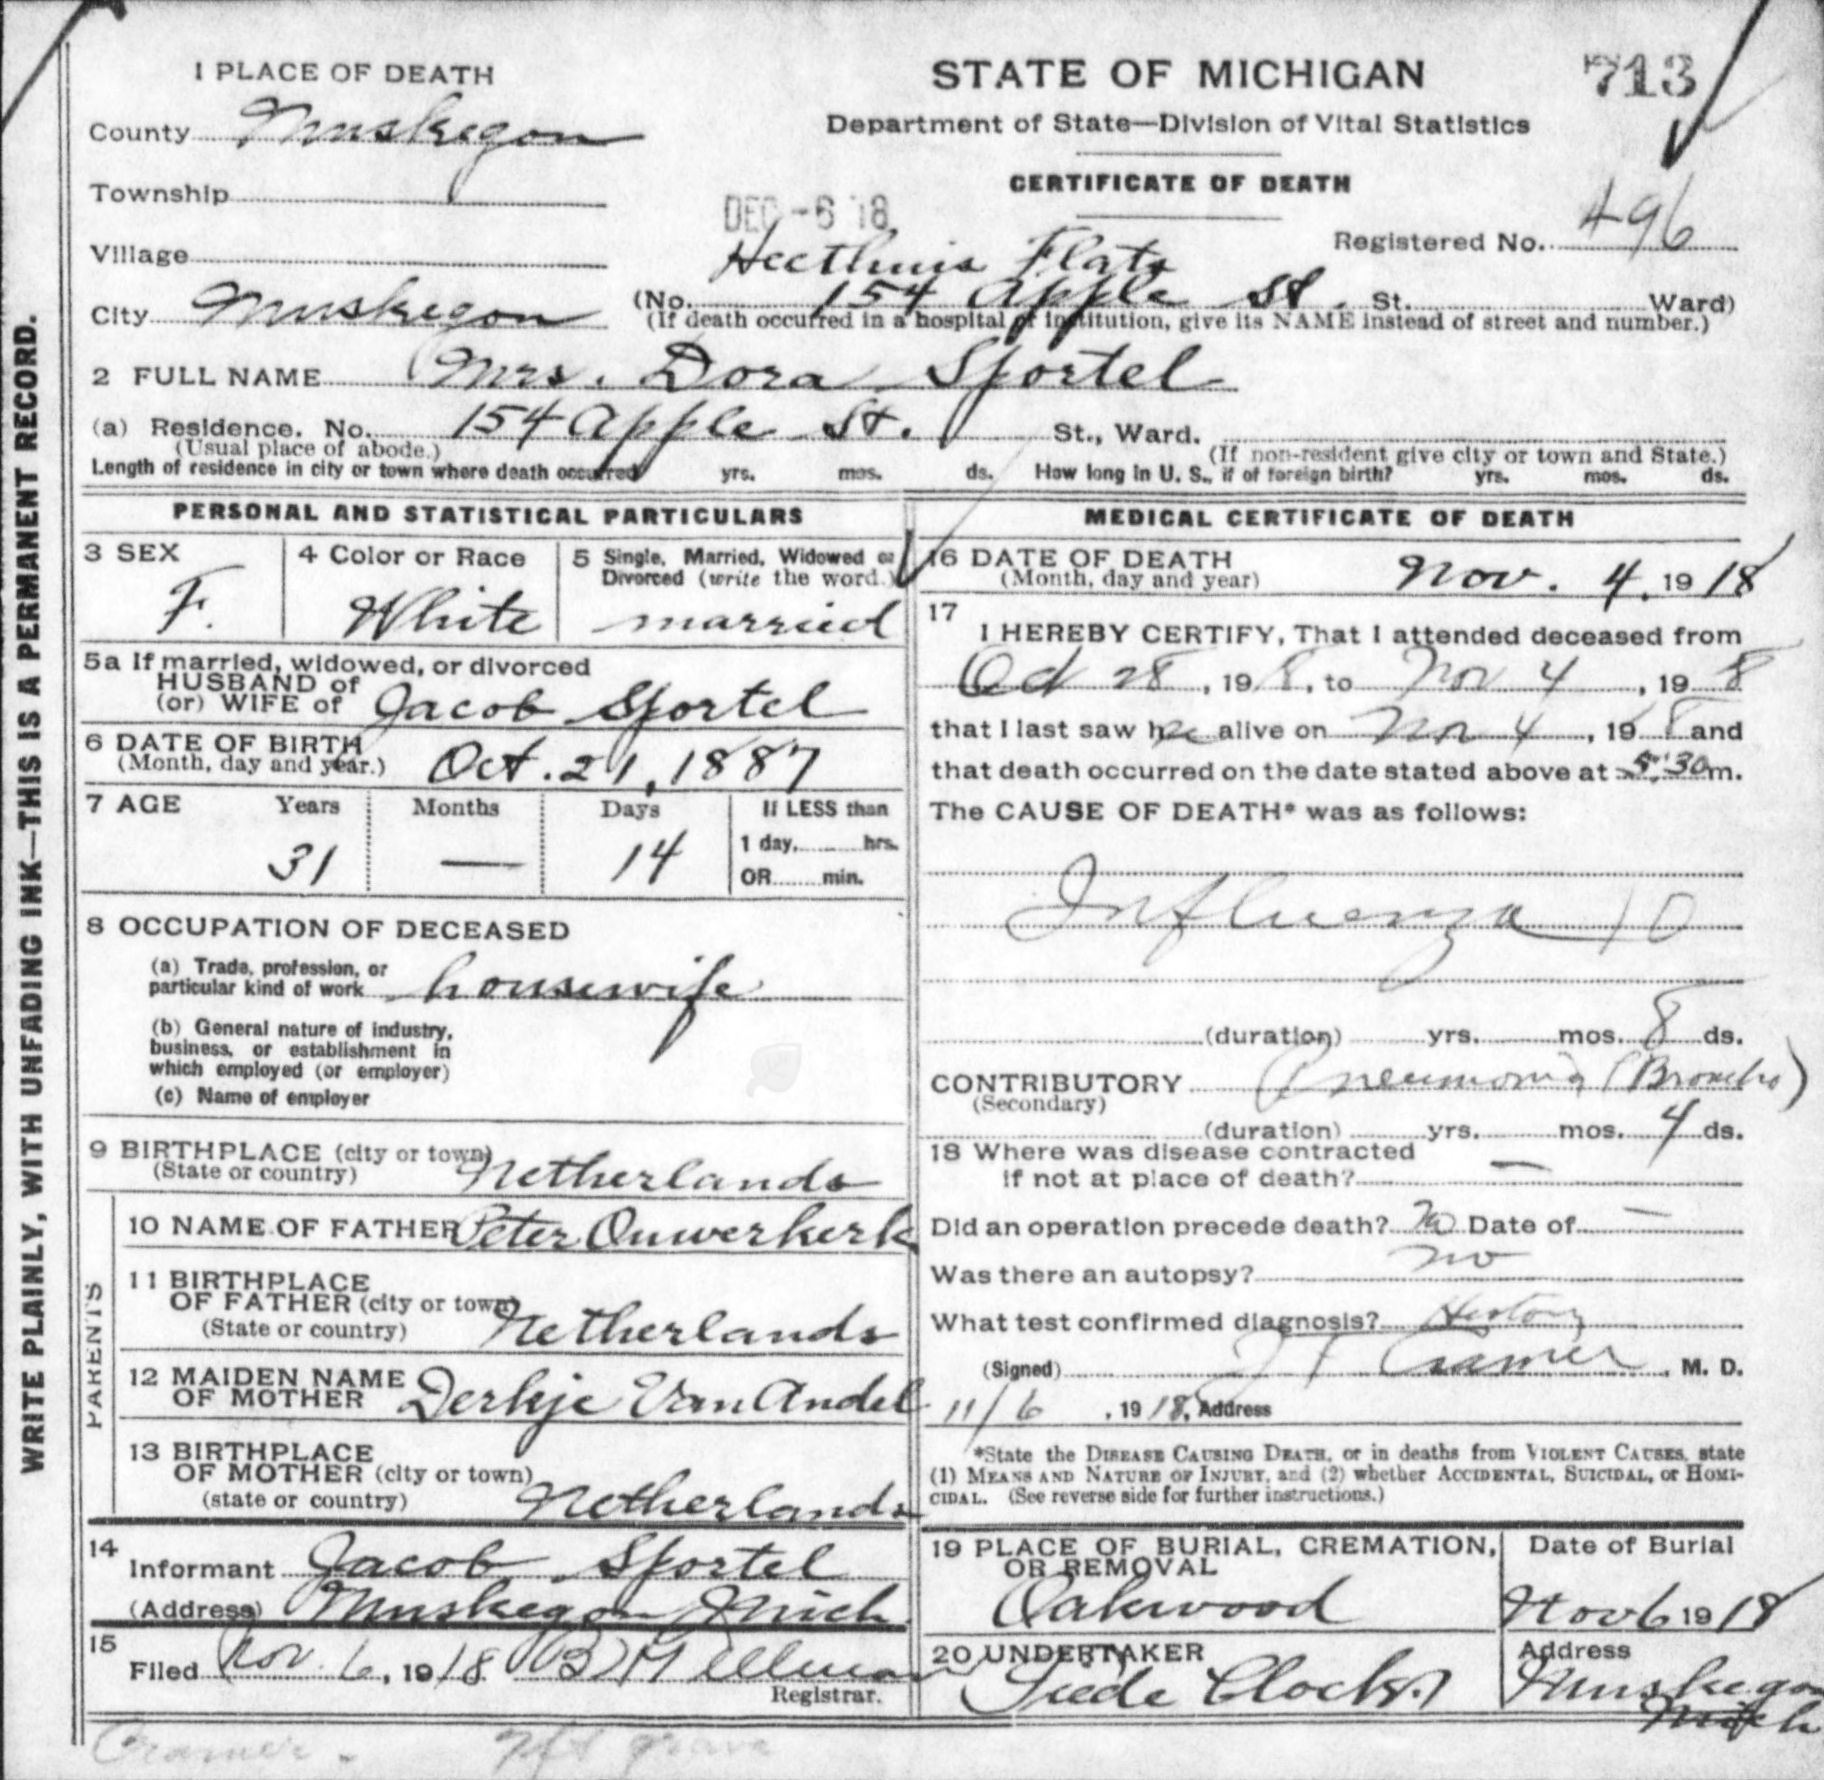 WRITE PLAINLY, WITH UNFADING INK—THIS IS A PERMANENT RECORD.
1 PLACE OF DEATH
County Muskegon
Township
Village
City Muskegon
STATE OF MICHIGAN
713
Department of State—Division of Vital Statistics
CERTIFICATE OF DEATH
DEC -6 18
Registered No. 496
Flats
(No. 154 Apple St. St. Ward)
(If death occurred in a hospital or institution, give its NAME instead of street and number.)
2 FULL NAME Mrs. Dora Sportel
(a) Residence. No. 154 Apple St. St., Ward.
(Usual place of abode.) (If non-resident give city or town and State.)
Length of residence in city or town where death occurred yrs. mos. ds. How long in U. S., if of foreign birth? yrs. mos. ds.
PERSONAL AND STATISTICAL PARTICULARS
3 SEX
F.
4 Color or Race
White
5 Single, Married, Widowed or
Divorced (write the word.)
married
5a If married, widowed, or divorced
HUSBAND of
(or) WIFE of Jacob Sportel
6 DATE OF BIRTH
(Month, day and year.) Oct. 21, 1887
7 AGE Years Months Days If LESS than
1 day, hrs.
31 — 14
OR min.
8 OCCUPATION OF DECEASED
(a) Trade, profession, or
particular kind of work housewife
(b) General nature of industry,
business, or establishment in
which employed (or employer)
(c) Name of employer
9 BIRTHPLACE (city or town)
(State or country) Netherlands
PARENTS
10 NAME OF FATHER Peter Ouwerkerk
11 BIRTHPLACE
OF FATHER (city or town)
(State or country) Netherlands
12 MAIDEN NAME
OF MOTHER Derkje Van Andel
13 BIRTHPLACE
OF MOTHER (city or town)
(state or country) Netherlands
14
Informant Jacob Sportel
(Address) Muskegon Mich.
15
Filed Nov. 6, 1918
Registrar.
MEDICAL CERTIFICATE OF DEATH
16 DATE OF DEATH
(Month, day and year) Nov. 4, 1918
17
I HEREBY CERTIFY, That I attended deceased from
Oct 28, 19 8, to Nov 4, 19 8
that I last saw her alive on Nov 4, 19 8 and
that death occurred on the date stated above at 5:30 m.
The CAUSE OF DEATH* was as follows:
Influenza 10
(duration) yrs. mos. 8 ds.
CONTRIBUTORY Pneumonia (Broncho)
(Secondary)
(duration) yrs. mos. 4 ds.
18 Where was disease contracted
if not at place of death? —
Did an operation precede death? No Date of —
Was there an autopsy? no
What test confirmed diagnosis? History
(Signed) J F Cramer, M. D.
11/6, 1918, Address
*State the DISEASE CAUSING DEATH, or in deaths from VIOLENT CAUSES, state
(1) MEANS AND NATURE OF INJURY, and (2) whether ACCIDENTAL, SUICIDAL, or HOMI-
CIDAL. (See reverse side for further instructions.)
19 PLACE OF BURIAL, CREMATION,
OR REMOVAL
Oakwood
Date of Burial
Nov 6 1918
20 UNDERTAKER
Address
Muskegon
Mich
Cramer. grave